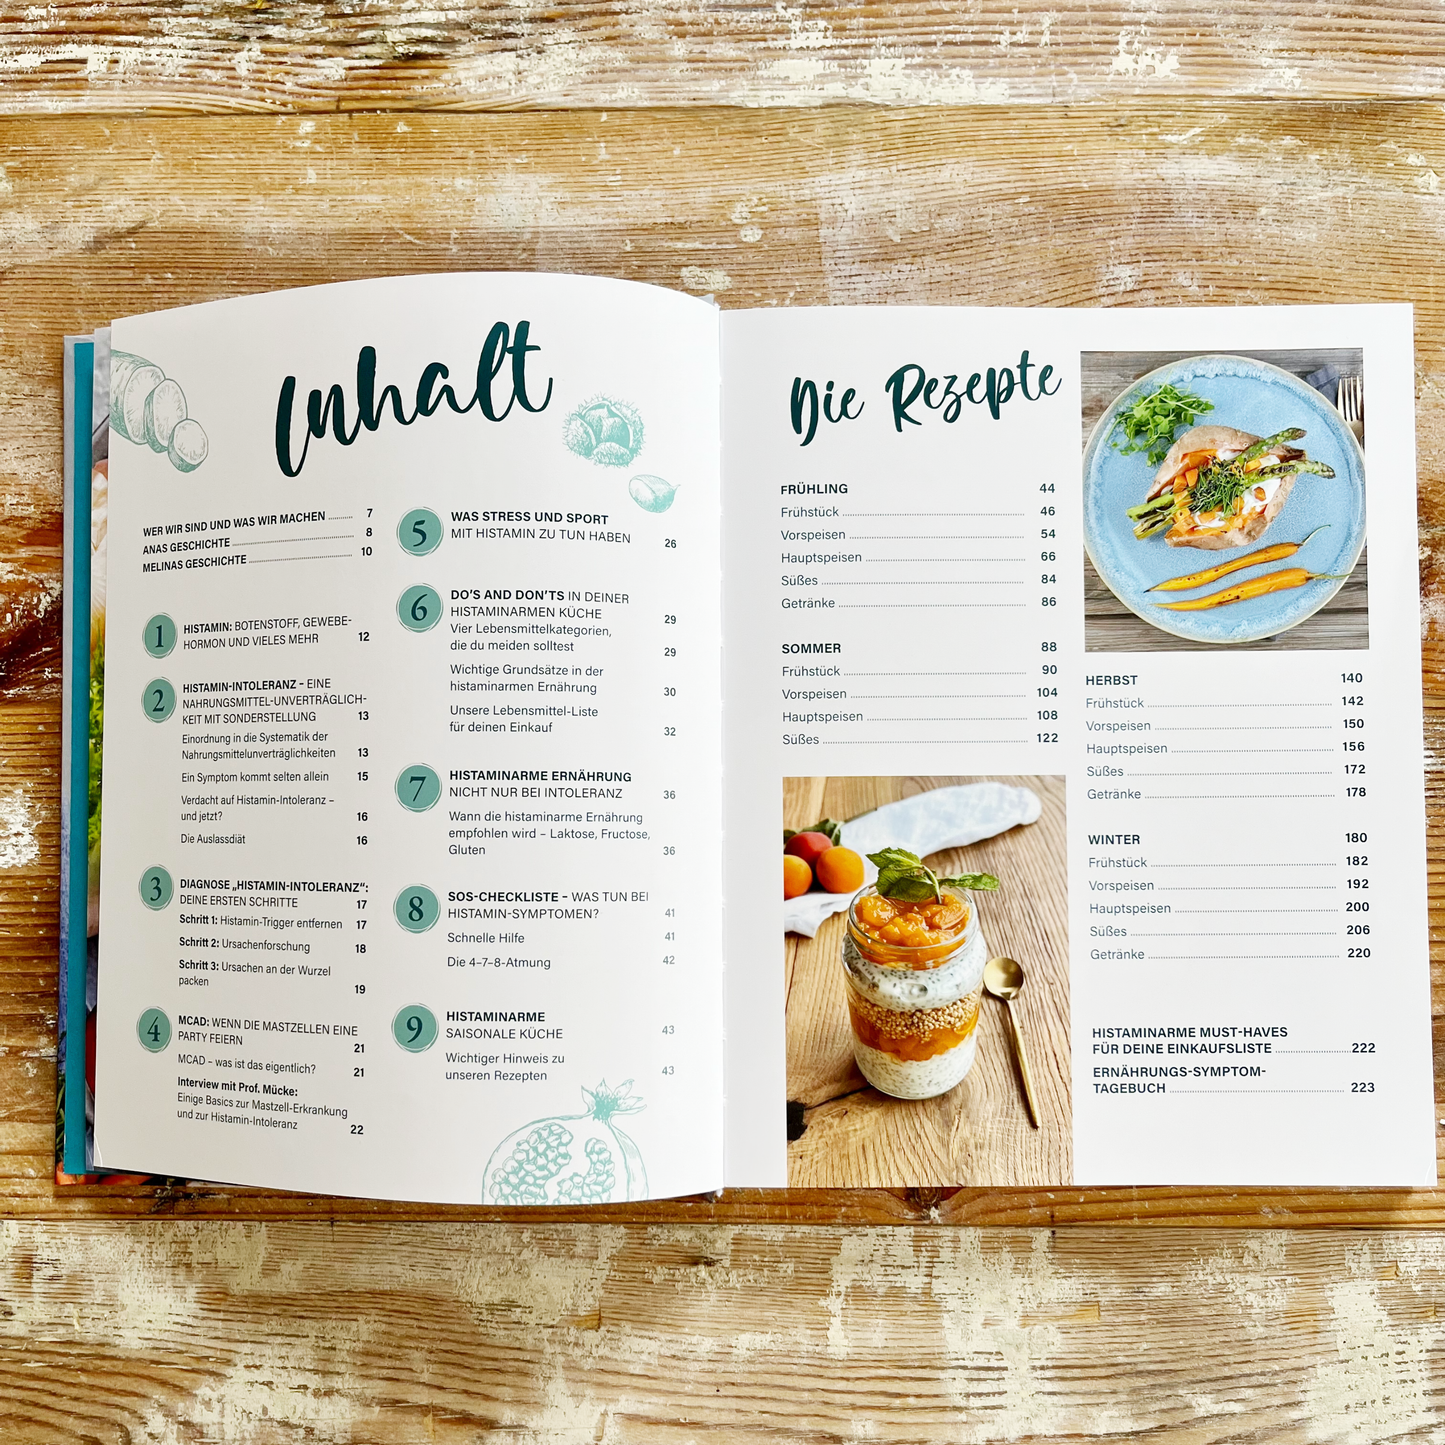 Inhalt
WER WIR SIND UND WAS WIR MACHEN ........ 7
ANAS GESCHICHTE ........ 8
MELINAS GESCHICHTE ........ 10
1 HISTAMIN: BOTENSTOFF, GEWEBE-
HORMON UND VIELES MEHR 12
2 HISTAMIN-INTOLERANZ – EINE
NAHRUNGSMITTEL-UNVERTRÄGLICH-
KEIT MIT SONDERSTELLUNG 13
Einordnung in die Systematik der
Nahrungsmittelunverträglichkeiten 13
Ein Symptom kommt selten allein 15
Verdacht auf Histamin-Intoleranz –
und jetzt? 16
Die Auslassdiät 16
3 DIAGNOSE „HISTAMIN-INTOLERANZ“:
DEINE ERSTEN SCHRITTE 17
Schritt 1: Histamin-Trigger entfernen 17
Schritt 2: Ursachenforschung 18
Schritt 3: Ursachen an der Wurzel
packen 19
4 MCAD: WENN DIE MASTZELLEN EINE
PARTY FEIERN 21
MCAD – was ist das eigentlich? 21
Interview mit Prof. Mücke:
Einige Basics zur Mastzell-Erkrankung
und zur Histamin-Intoleranz 22
5 WAS STRESS UND SPORT
MIT HISTAMIN ZU TUN HABEN 26
6 DO'S AND DON'TS IN DEINER
HISTAMINARMEN KÜCHE 29
Vier Lebensmittelkategorien,
die du meiden solltest 29
Wichtige Grundsätze in der
histaminarmen Ernährung 30
Unsere Lebensmittel-Liste
für deinen Einkauf 32
7 HISTAMINARME ERNÄHRUNG
NICHT NUR BEI INTOLERANZ 36
Wann die histaminarme Ernährung
empfohlen wird – Laktose, Fructose,
Gluten 36
8 SOS-CHECKLISTE – WAS TUN BEI
HISTAMIN-SYMPTOMEN? 41
Schnelle Hilfe 41
Die 4–7–8-Atmung 42
9 HISTAMINARME
SAISONALE KÜCHE 43
Wichtiger Hinweis zu
unseren Rezepten 43
Die Rezepte
FRÜHLING 44
Frühstück ........ 46
Vorspeisen ........ 54
Hauptspeisen ........ 66
Süßes ........ 84
Getränke ........ 86
SOMMER 88
Frühstück ........ 90
Vorspeisen ........ 104
Hauptspeisen ........ 108
Süßes ........ 122
HERBST 140
Frühstück ........ 142
Vorspeisen ........ 150
Hauptspeisen ........ 156
Süßes ........ 172
Getränke ........ 178
WINTER 180
Frühstück ........ 182
Vorspeisen ........ 192
Hauptspeisen ........ 200
Süßes ........ 206
Getränke ........ 220
HISTAMINARME MUST-HAVES
FÜR DEINE EINKAUFSLISTE ........ 222
ERNÄHRUNGS-SYMPTOM-
TAGEBUCH ........ 223